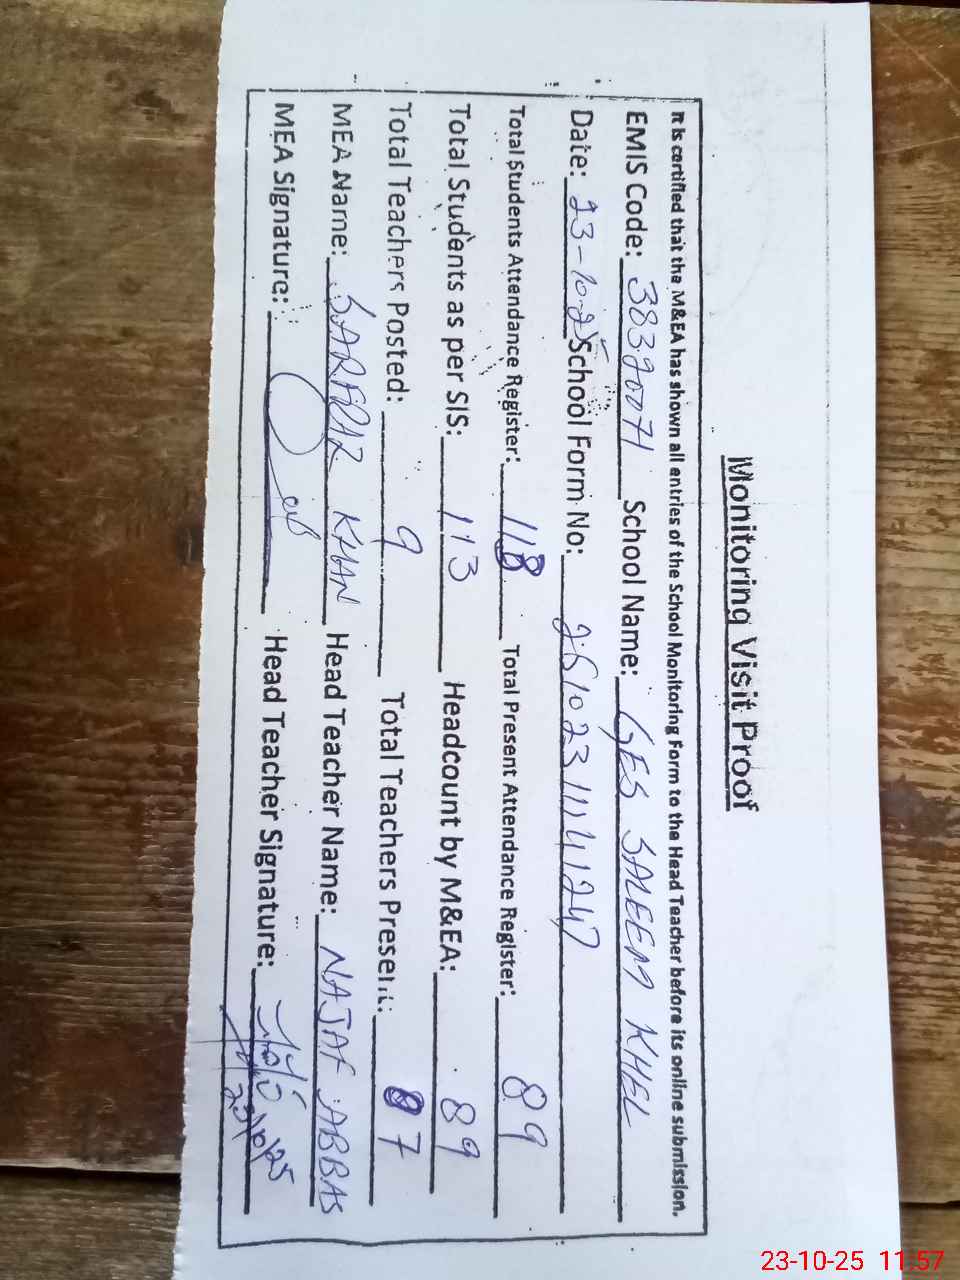 Monitoring Visit Proof
It is certified that the M&EA has shown all entries of the School Monitoring Form to the Head Teacher before its online submission.
EMIS Code: 38320071 School Name: GES SALEEM KHEL
Date: 23-10-25 School Form No:
Total Students Attendance Register: 118 Total Present Attendance Register: 89
Total Students as per SIS: 113 Headcount by M&EA: 89
Total Teachers Posted: 9 Total Teachers Present: 7
MEA Name: SARFRAZ KHAN Head Teacher Name: NAJAF ABBAS
MEA Signature: Head Teacher Signature:
23/10/25
23-10-25 11:57